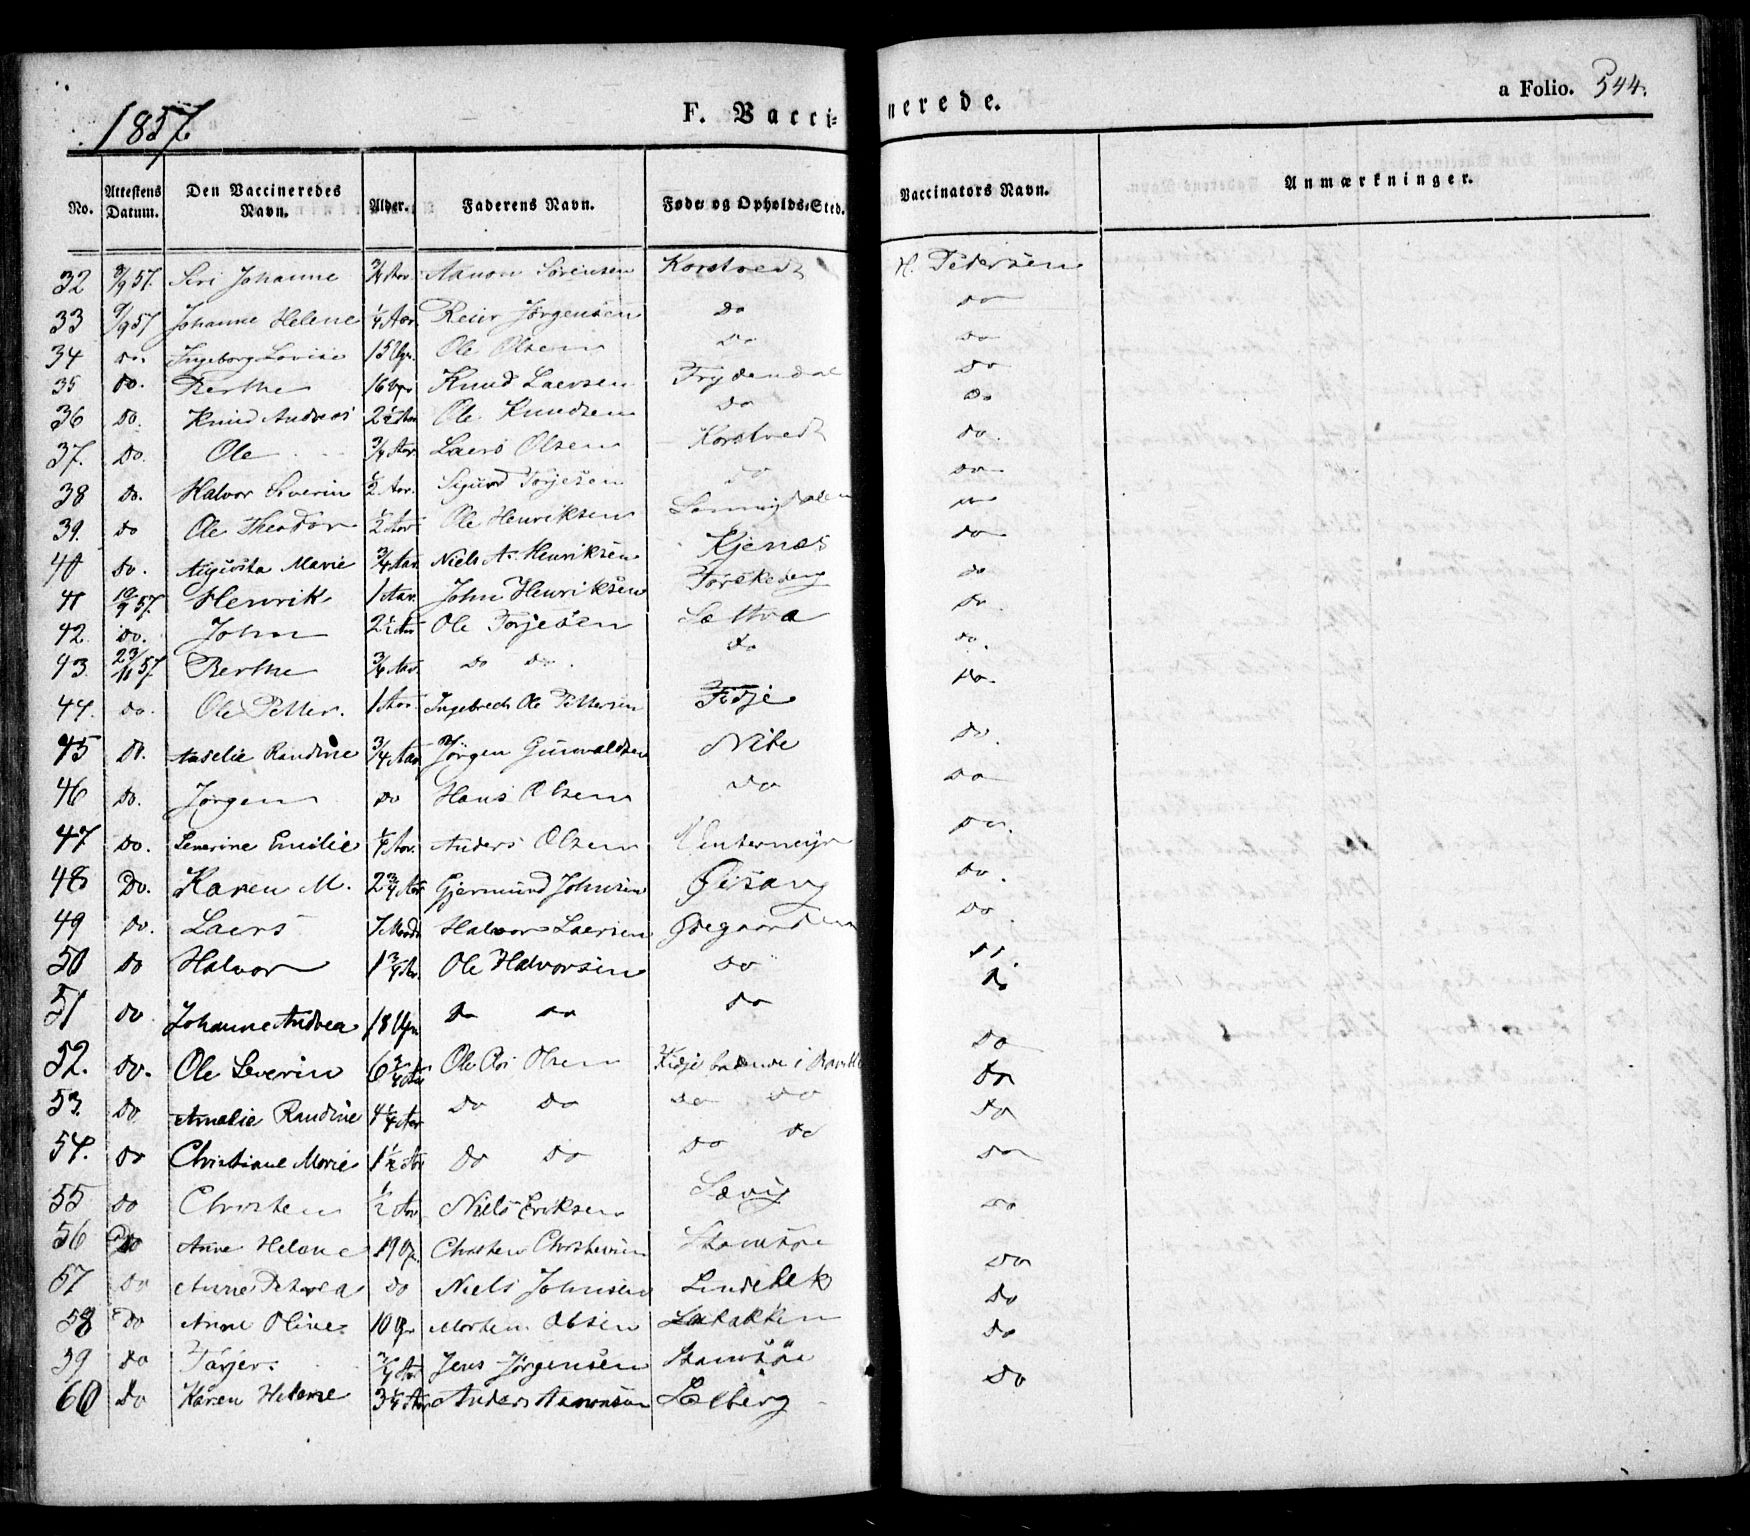 1857.
F. Vaccinerede.
a Folio. 544.
No. | Attestens Datum. | Den Vaccineredes Navn. | Alder. | Faderens Navn. | Føde- og Opholds-Sted. | Vaccinators Navn. | Anmærkninger.
32 | 3/9 57. | Siri Johanne | 3/4 Aar. | Aanon Sørensen | Korstvedt | H. Pedersen
33 | 9/9 57 | Johanne Helene | 1/4 Aar. | Reier Jørgensen | Do | Do
34 | Do. | Ingeborg Lovise | 15 Ugr. | Ole Olsen | Do | Do
35 | Do. | Berthe | 16 Ugr | Knud Laersen | Frydendal | Do
36 | Do. | Knud Andreas | 2 1/2 Aar | Ole Knudsen | Do | Do
37. | Do. | Ole | 3/4 Aar. | Laers Olsen | Korstvedt | Do.
38 | Do. | Halvor Severin | 1/2 Aar. | Sigurd Torjesen | Do | Do
39. | Do | Ole Theodor | 1/2 Aar | Ole Henriksen | | Do
40 | Do. | Augusta Marie | 3/4 Aar. | Niels A. Henriksen | Kjenæs | Do
41 | 10/9 57. | Henrik | 1 Aar. | John Henriksen | Torskeberg | Do
42. | Do. | John | 2 1/2 Aar | Ole Torjesen | Sættra | Do.
43. | 23/11 57. | Berthe | 3/4 Aar. | Do Do. | Do | Do.
44. | Do. | Ole Petter. | 1 Aar. | Ingebreth Ole Pettersen | Fidje | Do.
45 | Do. | Amelie Randine | 3/4 Aar | Jørgen Gunvaldsen | Nibe | Do.
46 | Do. | Jørgen | Do | Hans Olsen | Do | Do
47 | Do. | Severine Emilie | 1/4 Aar. | Anders Olsen | | Do.
48 | Do. | Karen M. | 2 3/4 Aar | Gjermund Johnsen | Øisang | Do.
49 | Do. | Laers | 7 Maad. | Halvor Laersen | Ødegaarden | Do.
50 | Do | Halvor | 1 3/4 Aar. | Ole Halvorsen | Do | Do.
51 | Do. | Johanne Andrea | 18 Ugr | Do Do | Do | Do
52. | Do. | Ole Severin | 6 3/4 Aar | Ole Olsen | Fidje i Bamble | Do
53. | Do | Amalie Randine | 4 1/4 Aar | Do Do | Do Do | Do
54. | Do | Christiane Marie | 1 1/2 Aar | Do Do | Do Do | Do
55 | Do | Christen | 1/2 Aar | Niels Eriksen | Søvig | Do
56 | Do | Anne Helene | 19 Ugr. | Christen Christensen | Stamsøe | Do
57 | Do | Anne Petrea | Do | Niels Johnsen | Lindebek | Do
58 | Do | Anne Oline. | 10 Ugr | Morten Olsen | Labakken | Do
59 | Do | Tarjer. | 3/4 Aar | Jens Jørgensen | Stamsøe | Do
60 | Do | Karen Helene | 3 1/4 Aar | Anders Aanonsen | Lelberg | Do